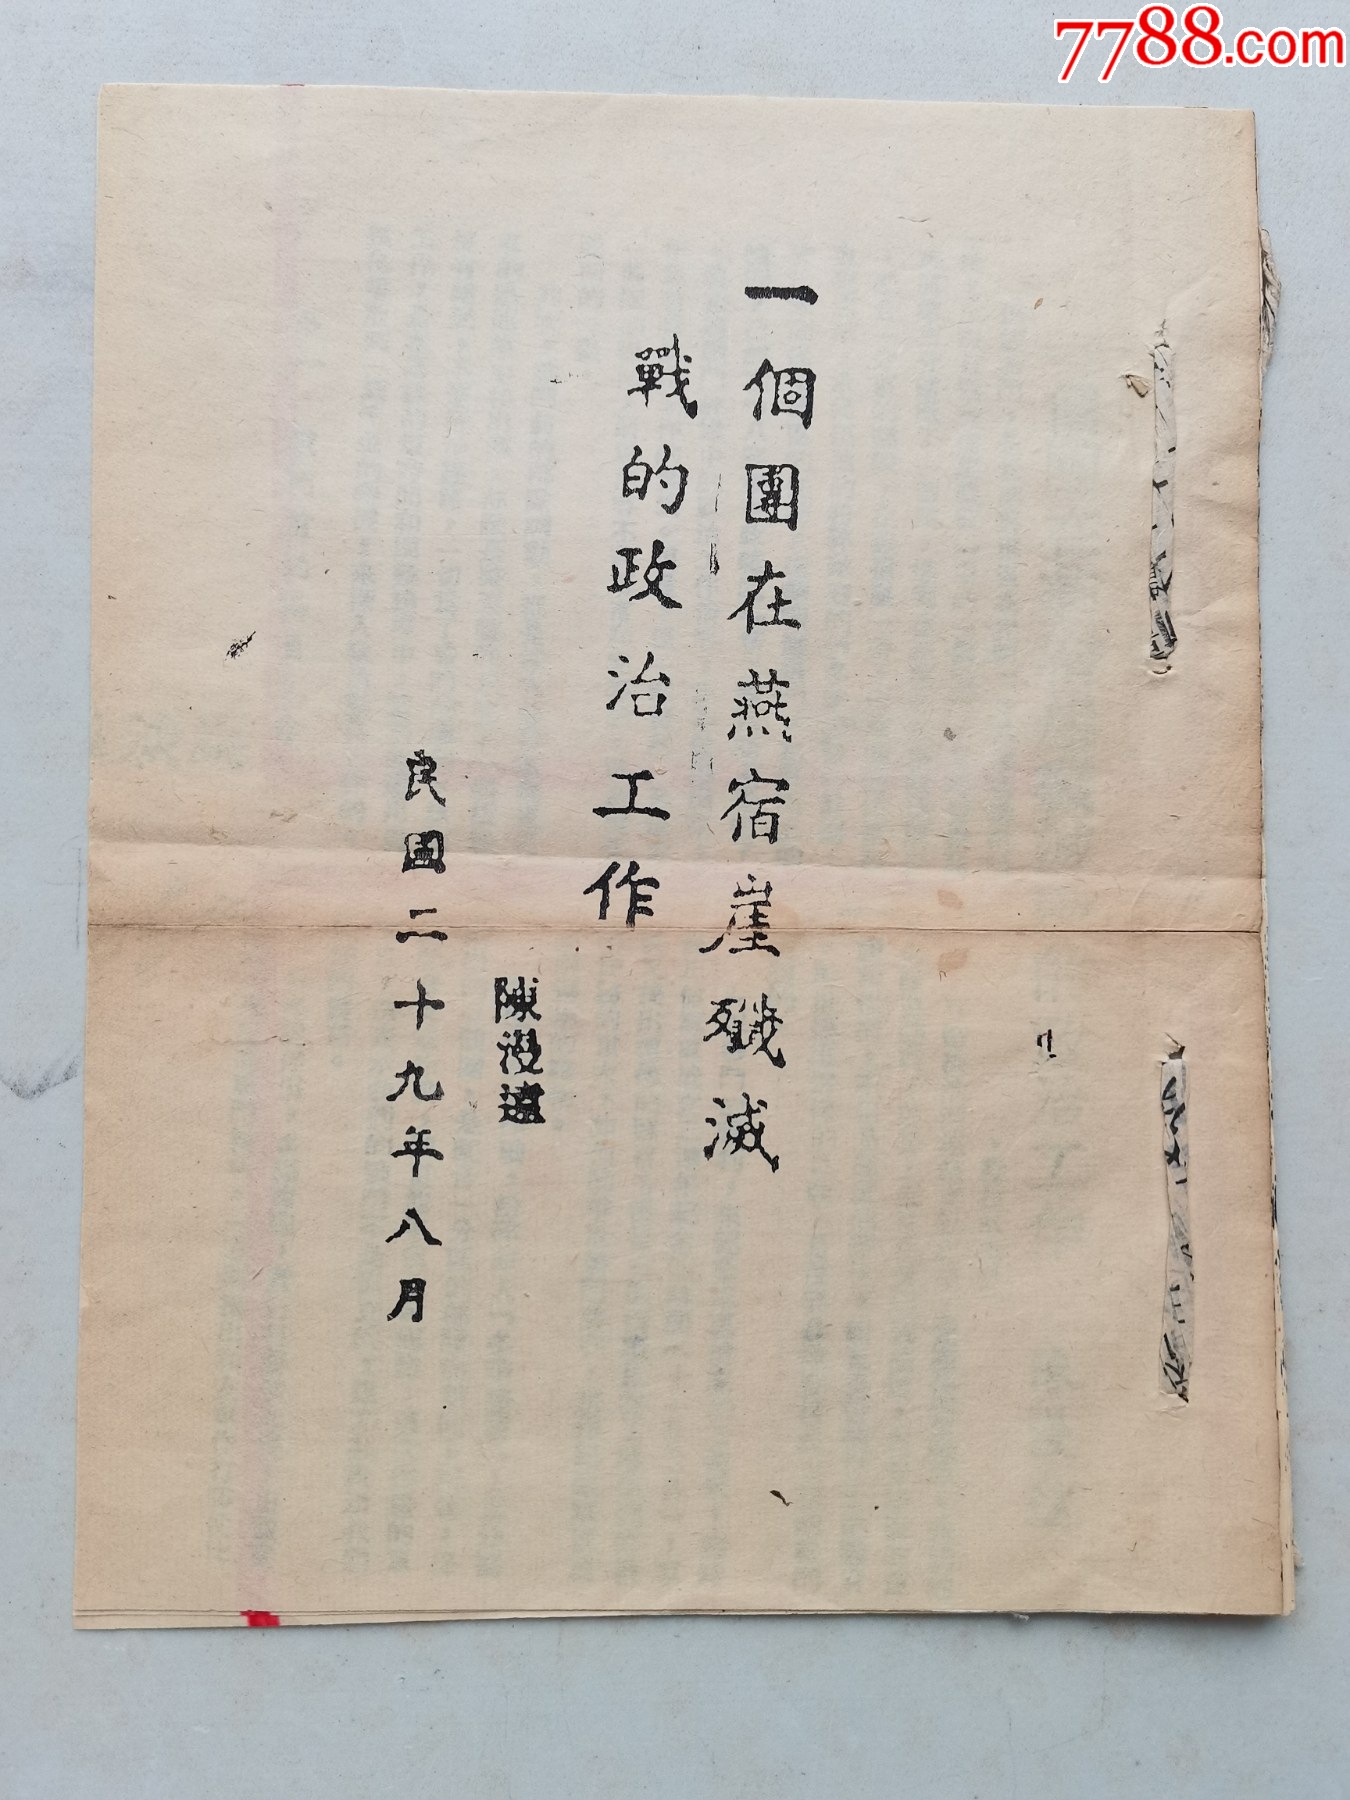 7788.com
一個團在燕宿崖殲滅
戰的政治工作
陳漫遠
民國二十九年八月